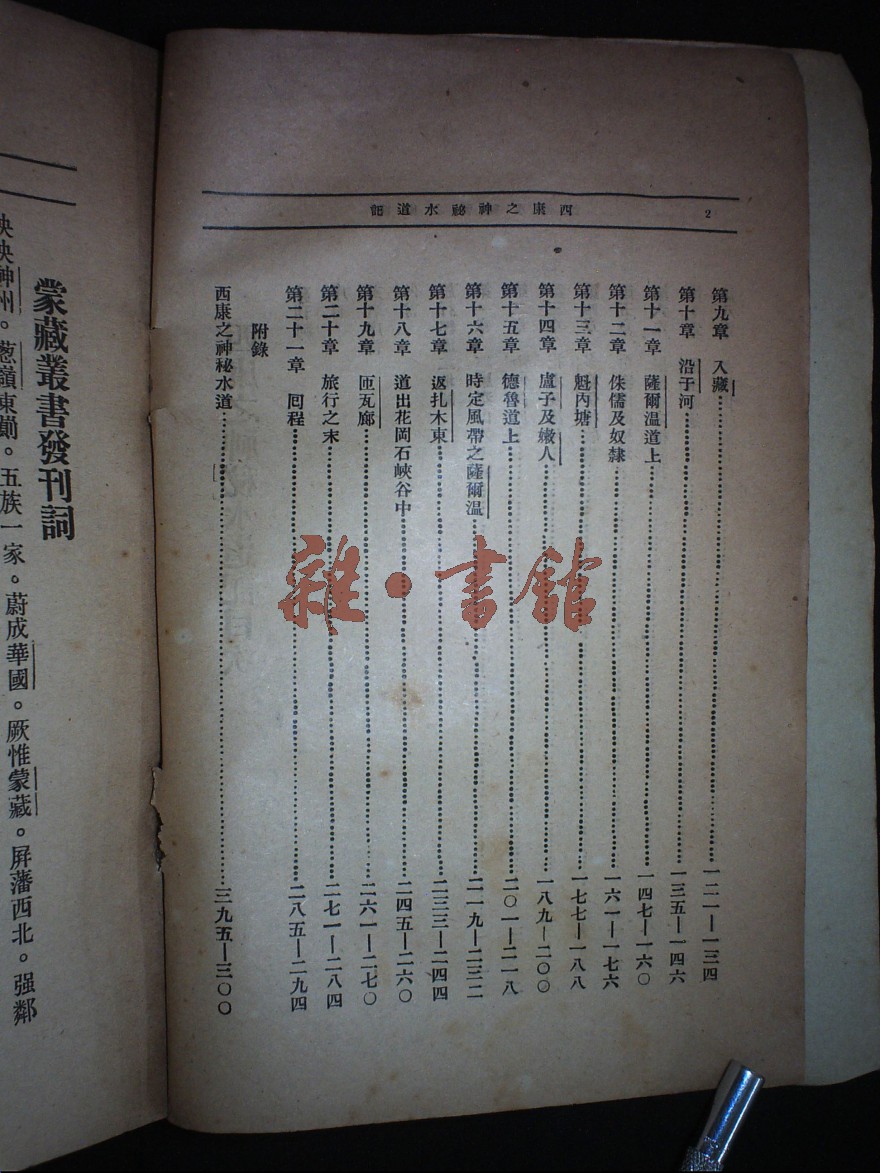 2 西康之神祕水道記
第九章　入藏……一二一—一三四
第十章　沿于河……一三五—一四六
第十一章　薩爾溫道上……一四七—一六〇
第十二章　侏儒及奴隸……一六一—一七六
第十三章　魁內塘……一七七—一八八
第十四章　盧子及嫩人……一八九—二〇〇
第十五章　德魯道上……二〇一—二一八
第十六章　時定風帶之薩爾溫……二一九—二三二
第十七章　返扎木東……二三三—二四四
第十八章　道出花岡石峽谷中……二四五—二六〇
第十九章　匝瓦廊……二六一—二七〇
第二十章　旅行之末……二七一—二八四
第二十一章　回程……二八五—二九四
附錄
西康之神秘水道……三九五—三〇〇
蒙藏叢書發刊詞
泱泱神州。葱嶺東蕲。五族一家。蔚成華國。厥惟蒙藏。屏藩西北。强鄰
雜·書館